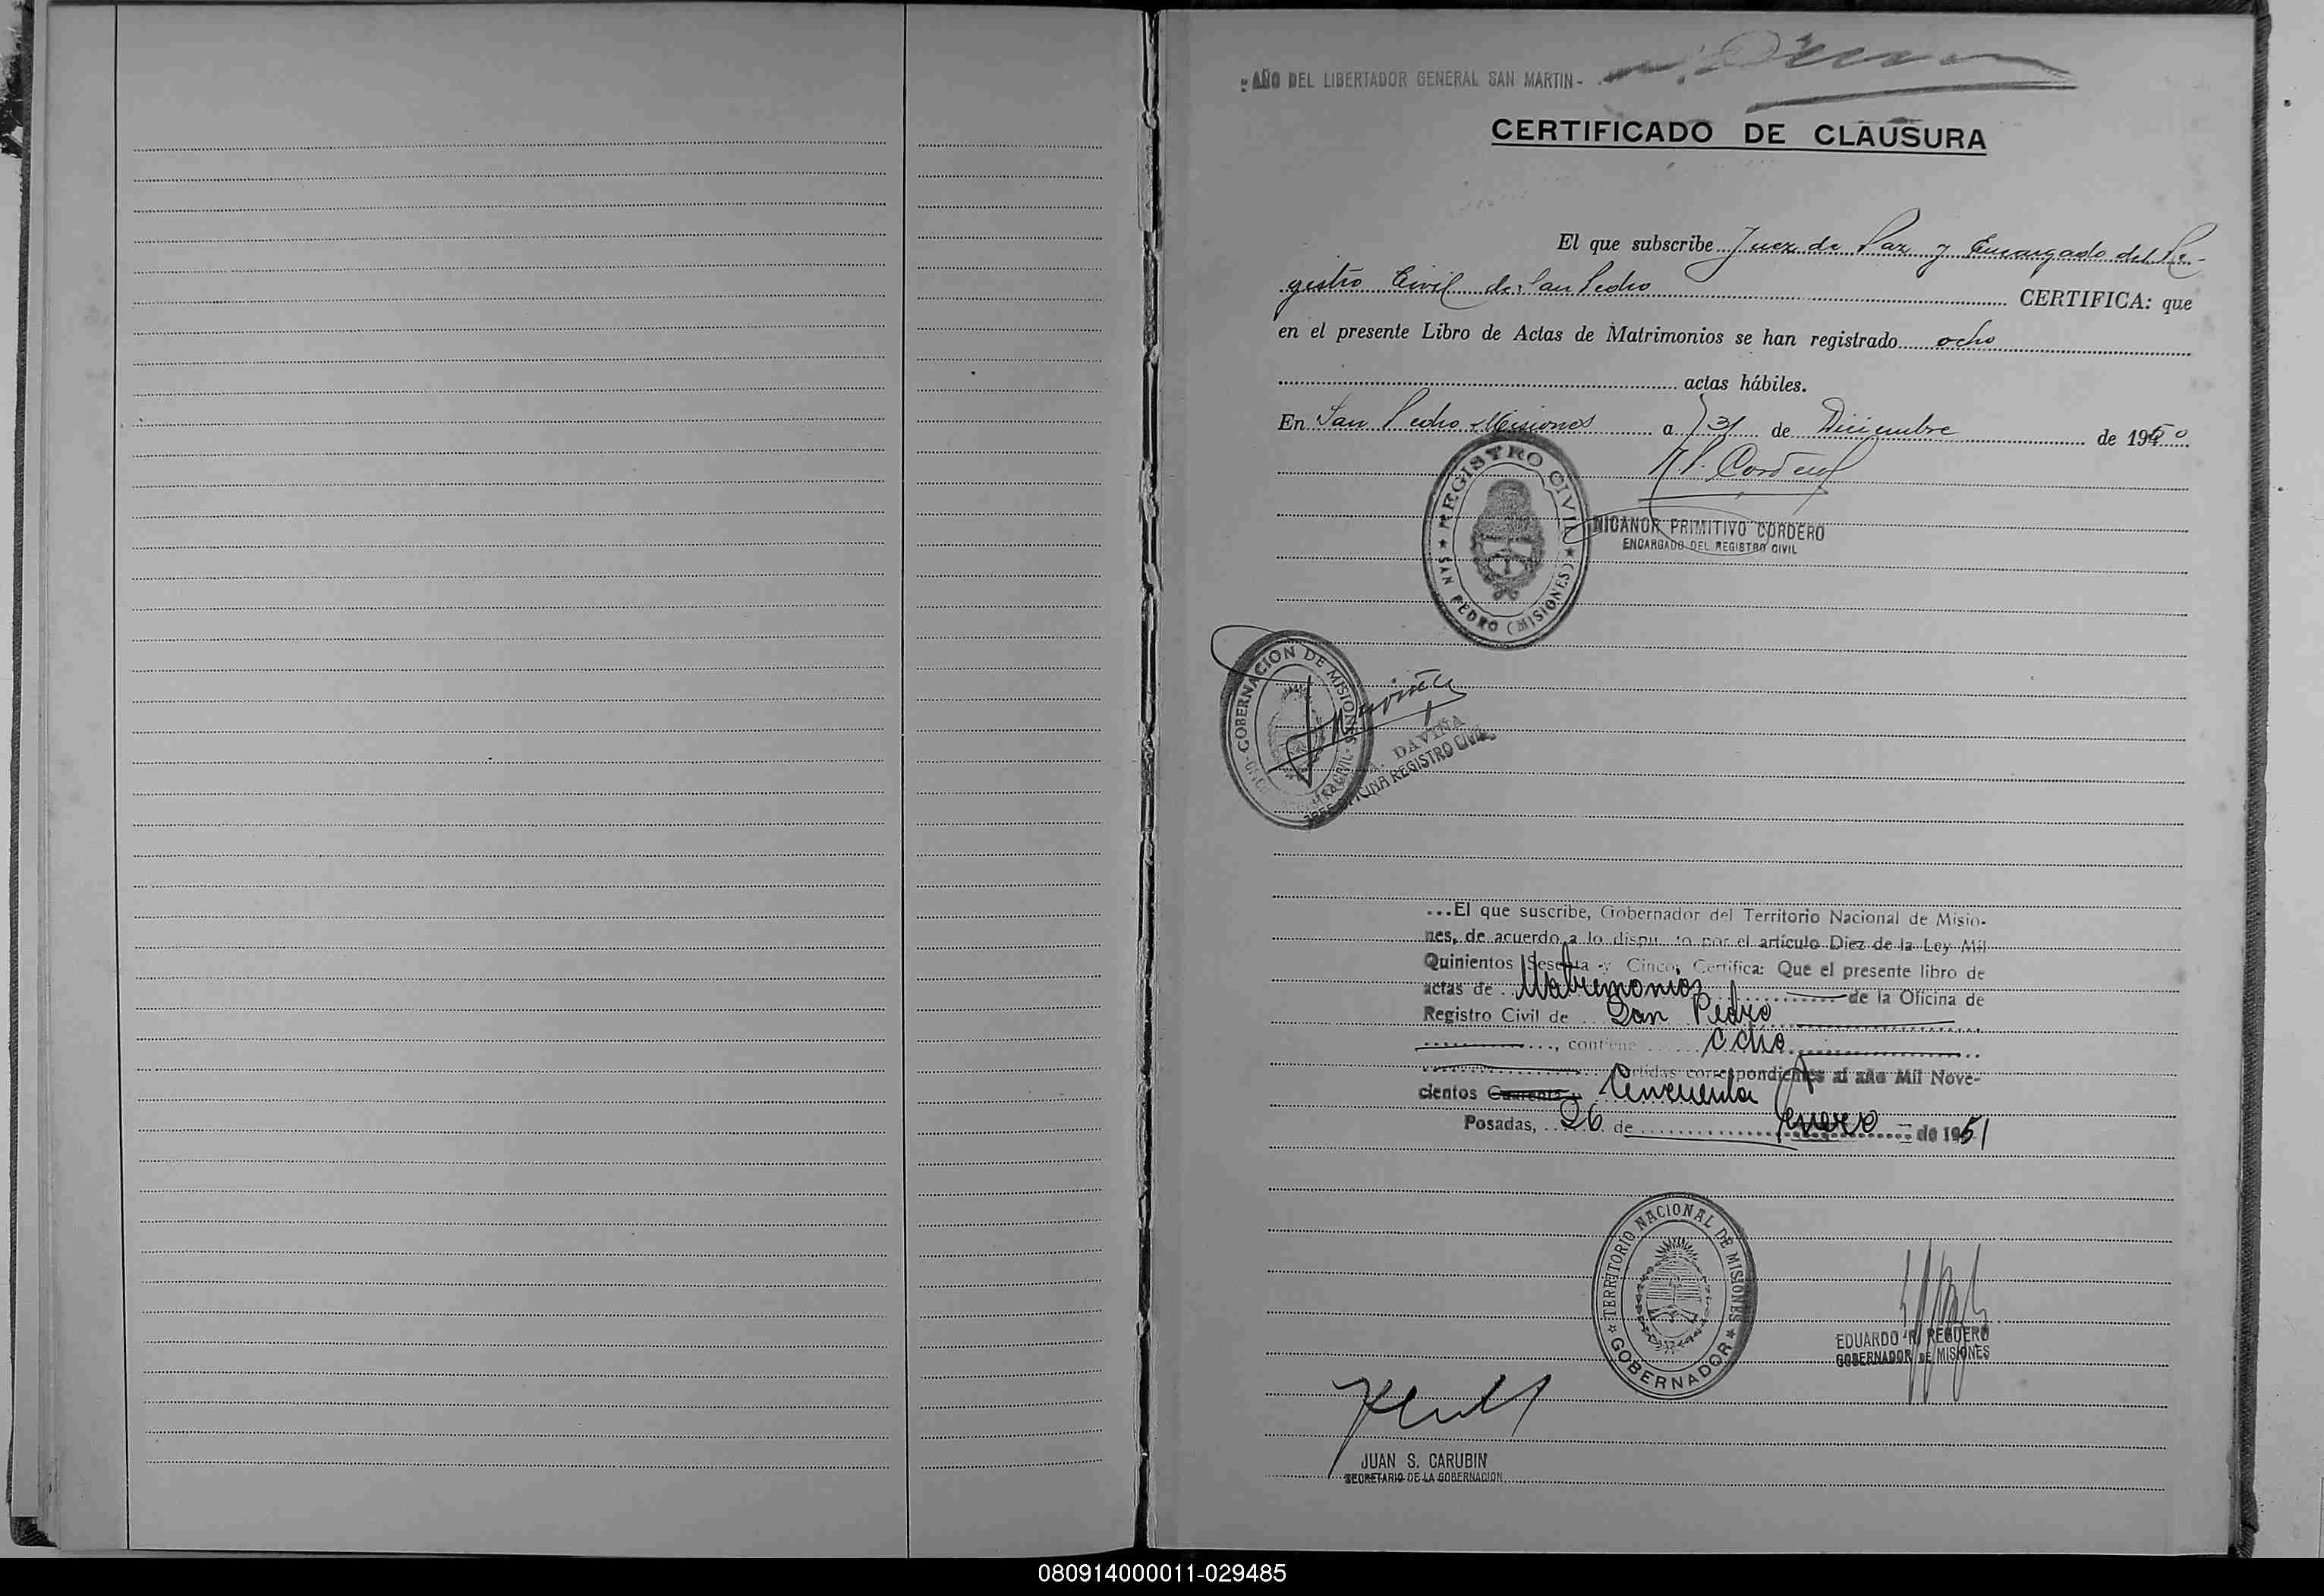 - AÑO DEL LIBERTADOR GENERAL SAN MARTIN -
CERTIFICADO DE CLAUSURA
El que subscribe Juez de Paz y Encargado del Re-
gistro Civil de San Pedro CERTIFICA: que
en el presente Libro de Actas de Matrimonios se han registrado ocho
actas hábiles.
En San Pedro Misiones a 31 de Diciembre de 1950
N. P. Cordero
REGISTRO CIVIL
SAN PEDRO (MISIONES)
NICANOR PRIMITIVO CORDERO
ENCARGADO DEL REGISTRO CIVIL
GOBERNACION DE MISIONES
DAVIÑA
JEFE OFICINA REGISTRO CIVIL
...El que suscribe, Gobernador del Territorio Nacional de Misio-
nes, de acuerdo a lo dispuesto por el artículo Diez de la Ley Mil
Quinientos Sesenta y Cinco, Certifica: Que el presente libro de
actas de Matrimonios de la Oficina de
Registro Civil de San Pedro
, contiene Ocho
partidas correspondientes al año Mil Nove-
cientos Cuarenta y Cincuenta
Posadas, 26 de Enero de 1951
TERRITORIO NACIONAL DE MISIONES
GOBERNADOR
EDUARDO R. REGUERO
GOBERNADOR DE MISIONES
JUAN S. CARUBIN
SECRETARIO DE LA GOBERNACION
080914000011-029485